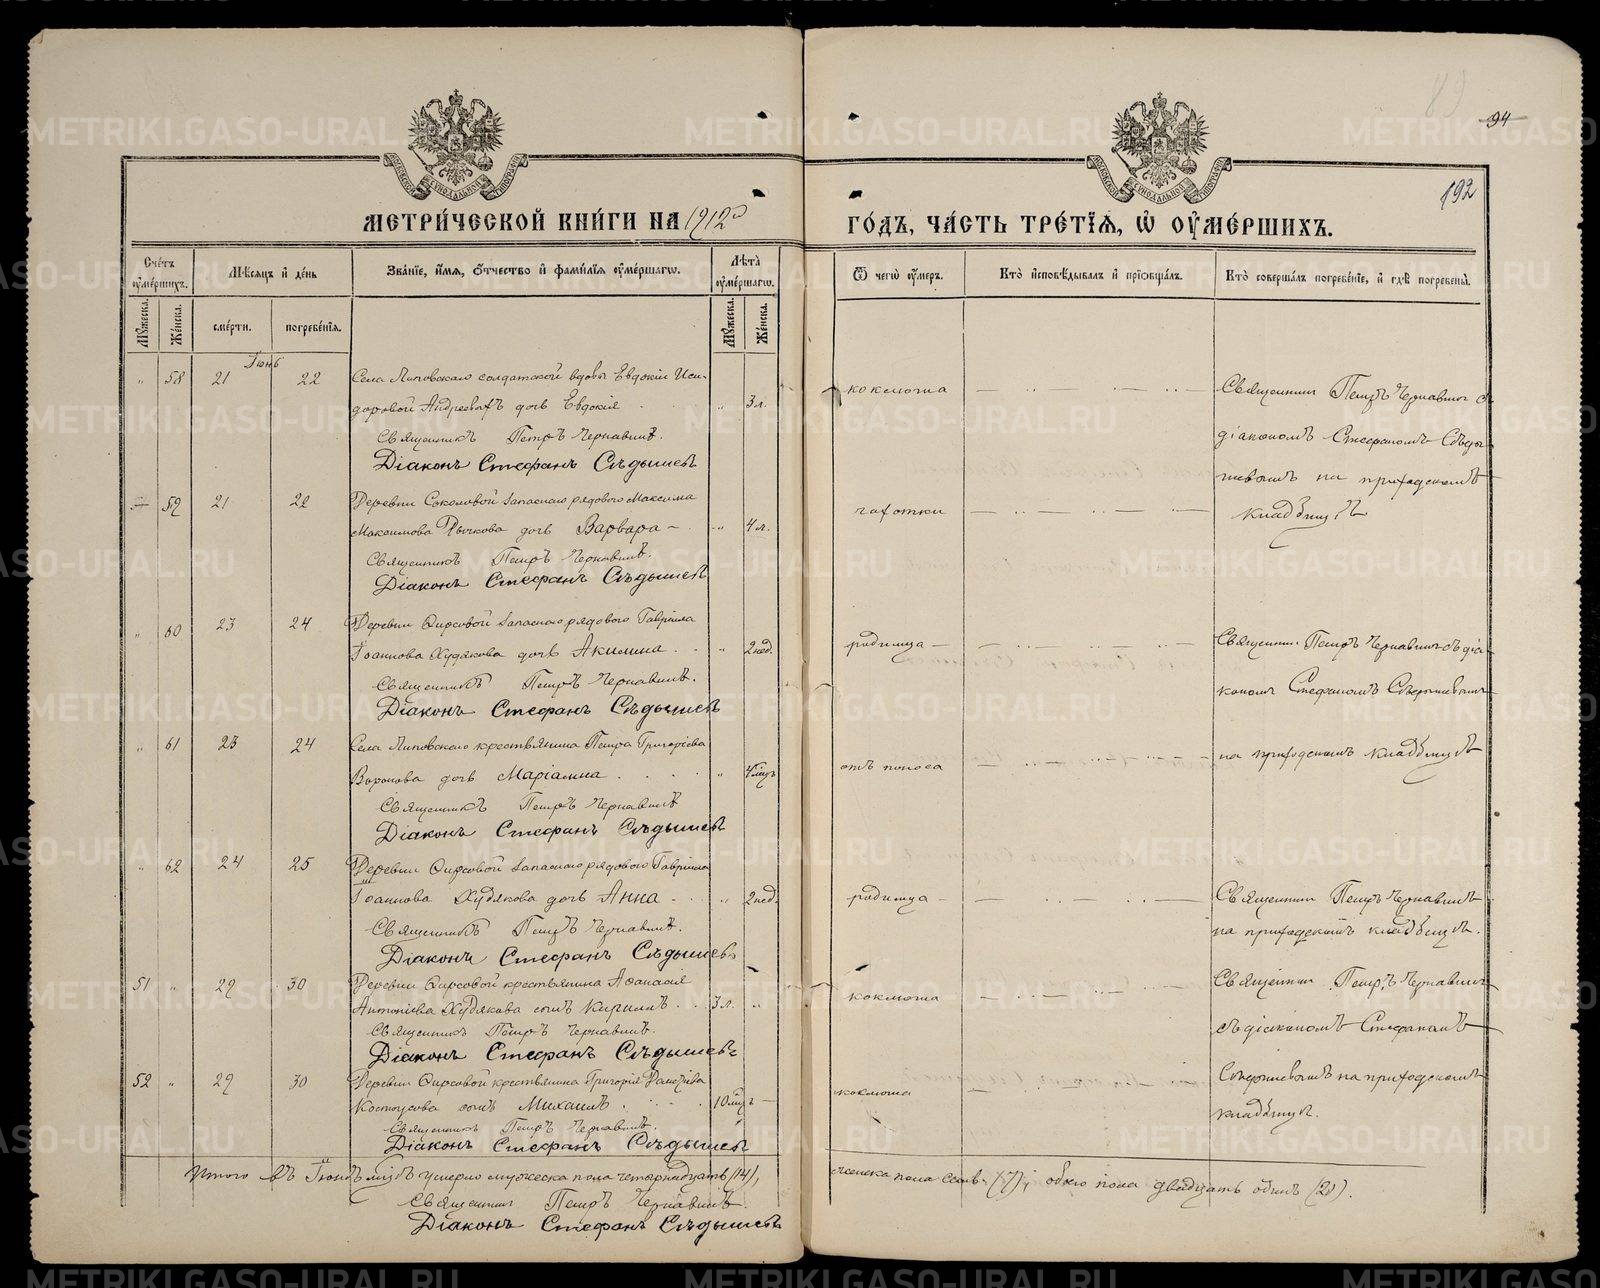 94
192
МЕТРИ́ЧЕСКОЙ КНИ́ГИ НА 1912 ГО́ДЪ, ЧА́СТЬ ТРЕ́ТЇѦ, Ѡ҆ ОУ҆МЕ́РШИХЪ.
Сче́тъ оу҆ме́ршихъ.
Мѣ́сѧцъ и҆ де́нь
Зва́нїе, и҆́мѧ, ѻ҆́тчество и҆ фами́лїѧ оу҆ме́ршагѡ.
Лѣ́та оу҆ме́ршагѡ.
Ѿ чегѡ̀ оу҆́меръ.
Кто̀ и҆сповѣ́дывалъ и҆ прїѡбща́лъ.
Кто̀ соверша́лъ погребе́нїе, и҆ гдѣ̀ погребены̀.
Мꙋ́жеска.
Же́нска.
сме́рти.
погребе́нїѧ.
Мꙋ́жеска.
Же́нска.
Іюнь
" 58 21 22 Села Липовскаго солдатской вдовы Евдокіи Иси-
доровой Андреевыхъ дочь Евдокія " 3 л. коклюша
Священникъ Петръ Чернавинъ.
Діаконъ Стефанъ Сѣдышевъ
Священник Петръ Чернавин съ
діакономъ Стефаномъ Сѣды-
шевымъ на приходскомъ
кладбищѣ
59 21 22 Деревни Соколовой запаснаго рядового Максима
Максимова Рычкова дочь Варвара " 4 л. чахотки
Священникъ Петръ Чернавинъ.
Діаконъ Стефанъ Сѣдышевъ
" 60 23 24 Деревни Фирсовой запаснаго рядового Гавріила
Іоаннова Худякова дочь Акилина " 2 нед. родимца
Священникъ Петръ Чернавинъ.
Діаконъ Стефанъ Сѣдышевъ
Священник Петръ Чернавин съ діа-
кономъ Стефаномъ Сѣдышевымъ
на приходскомъ кладбищѣ
" 61 23 24 Села Липовскаго крестьянина Петра Григоріева
Воронова дочь Маріамна " 4 мцъ отъ поноса
Священникъ Петръ Чернавинъ
Діаконъ Стефанъ Сѣдышевъ
" 62 24 25 Деревни Фирсовой запаснаго рядового Гавріила
Іоаннова Худякова дочь Анна " 2 нед. родимца
Священникъ Петръ Чернавинъ.
Діаконъ Стефанъ Сѣдышевъ
Священник Петръ Чернавинъ
на приходскомъ кладбищѣ.
51 " 29 30 Деревни Фирсовой крестьянина Аѳанасія
Антоніева Худякова сынъ Кириллъ 3 л. " коклюша
Священникъ Петръ Чернавинъ.
Діаконъ Стефанъ Сѣдышевъ
Священник Петръ Чернавин
съ діакономъ Стефаномъ
Сѣдышевымъ на приходскомъ
кладбищѣ.
52 " 29 30 Деревни Фирсовой крестьянина Григорія
Костоусова сынъ Михаилъ 10 мцъ коклюша
Священникъ Петръ Чернавинъ.
Діаконъ Стефанъ Сѣдышевъ
Итого въ Іюнѣ мцѣ умерло мужеска пола четырнадцать (14), женска пола семь (7), обоего пола двадцать одинъ (21).
Священник Петръ Чернавинъ.
Діаконъ Стефанъ Сѣдышевъ
METRIKI.GASO-URAL.RU